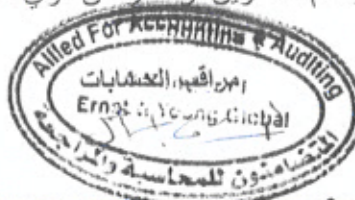 Allied For Accounting & Auditing
مراقبى الحسابات
Ernst & Young Global
المتضامنون للمحاسبة والمراجعة